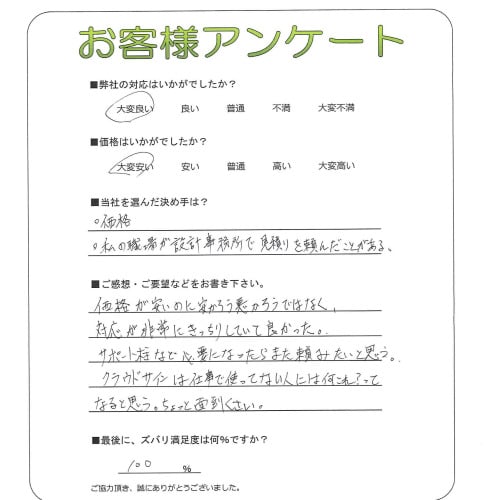 お客様アンケート
■弊社の対応はいかがでしたか？
大変良い 良い 普通 不満 大変不満
■価格はいかがでしたか？
大変安い 安い 普通 高い 大変高い
■当社を選んだ決め手は？
○価格
○私の職場が設計事務所で見積りを頼んだことがある、
■ご感想・ご要望などをお書き下さい。
価格が安いのに安かろう悪かろうではなく、
対応が非常にきっちりしていて良かった。
サポート柱など必要になったらまた頼みたいと思う。
クラウドサインは仕事で使ってない人には何これ？って
なると思う。ちょっと面倒くさい。
■最後に、ズバリ満足度は何%ですか？
100 %
ご協力頂き、誠にありがとうございました。